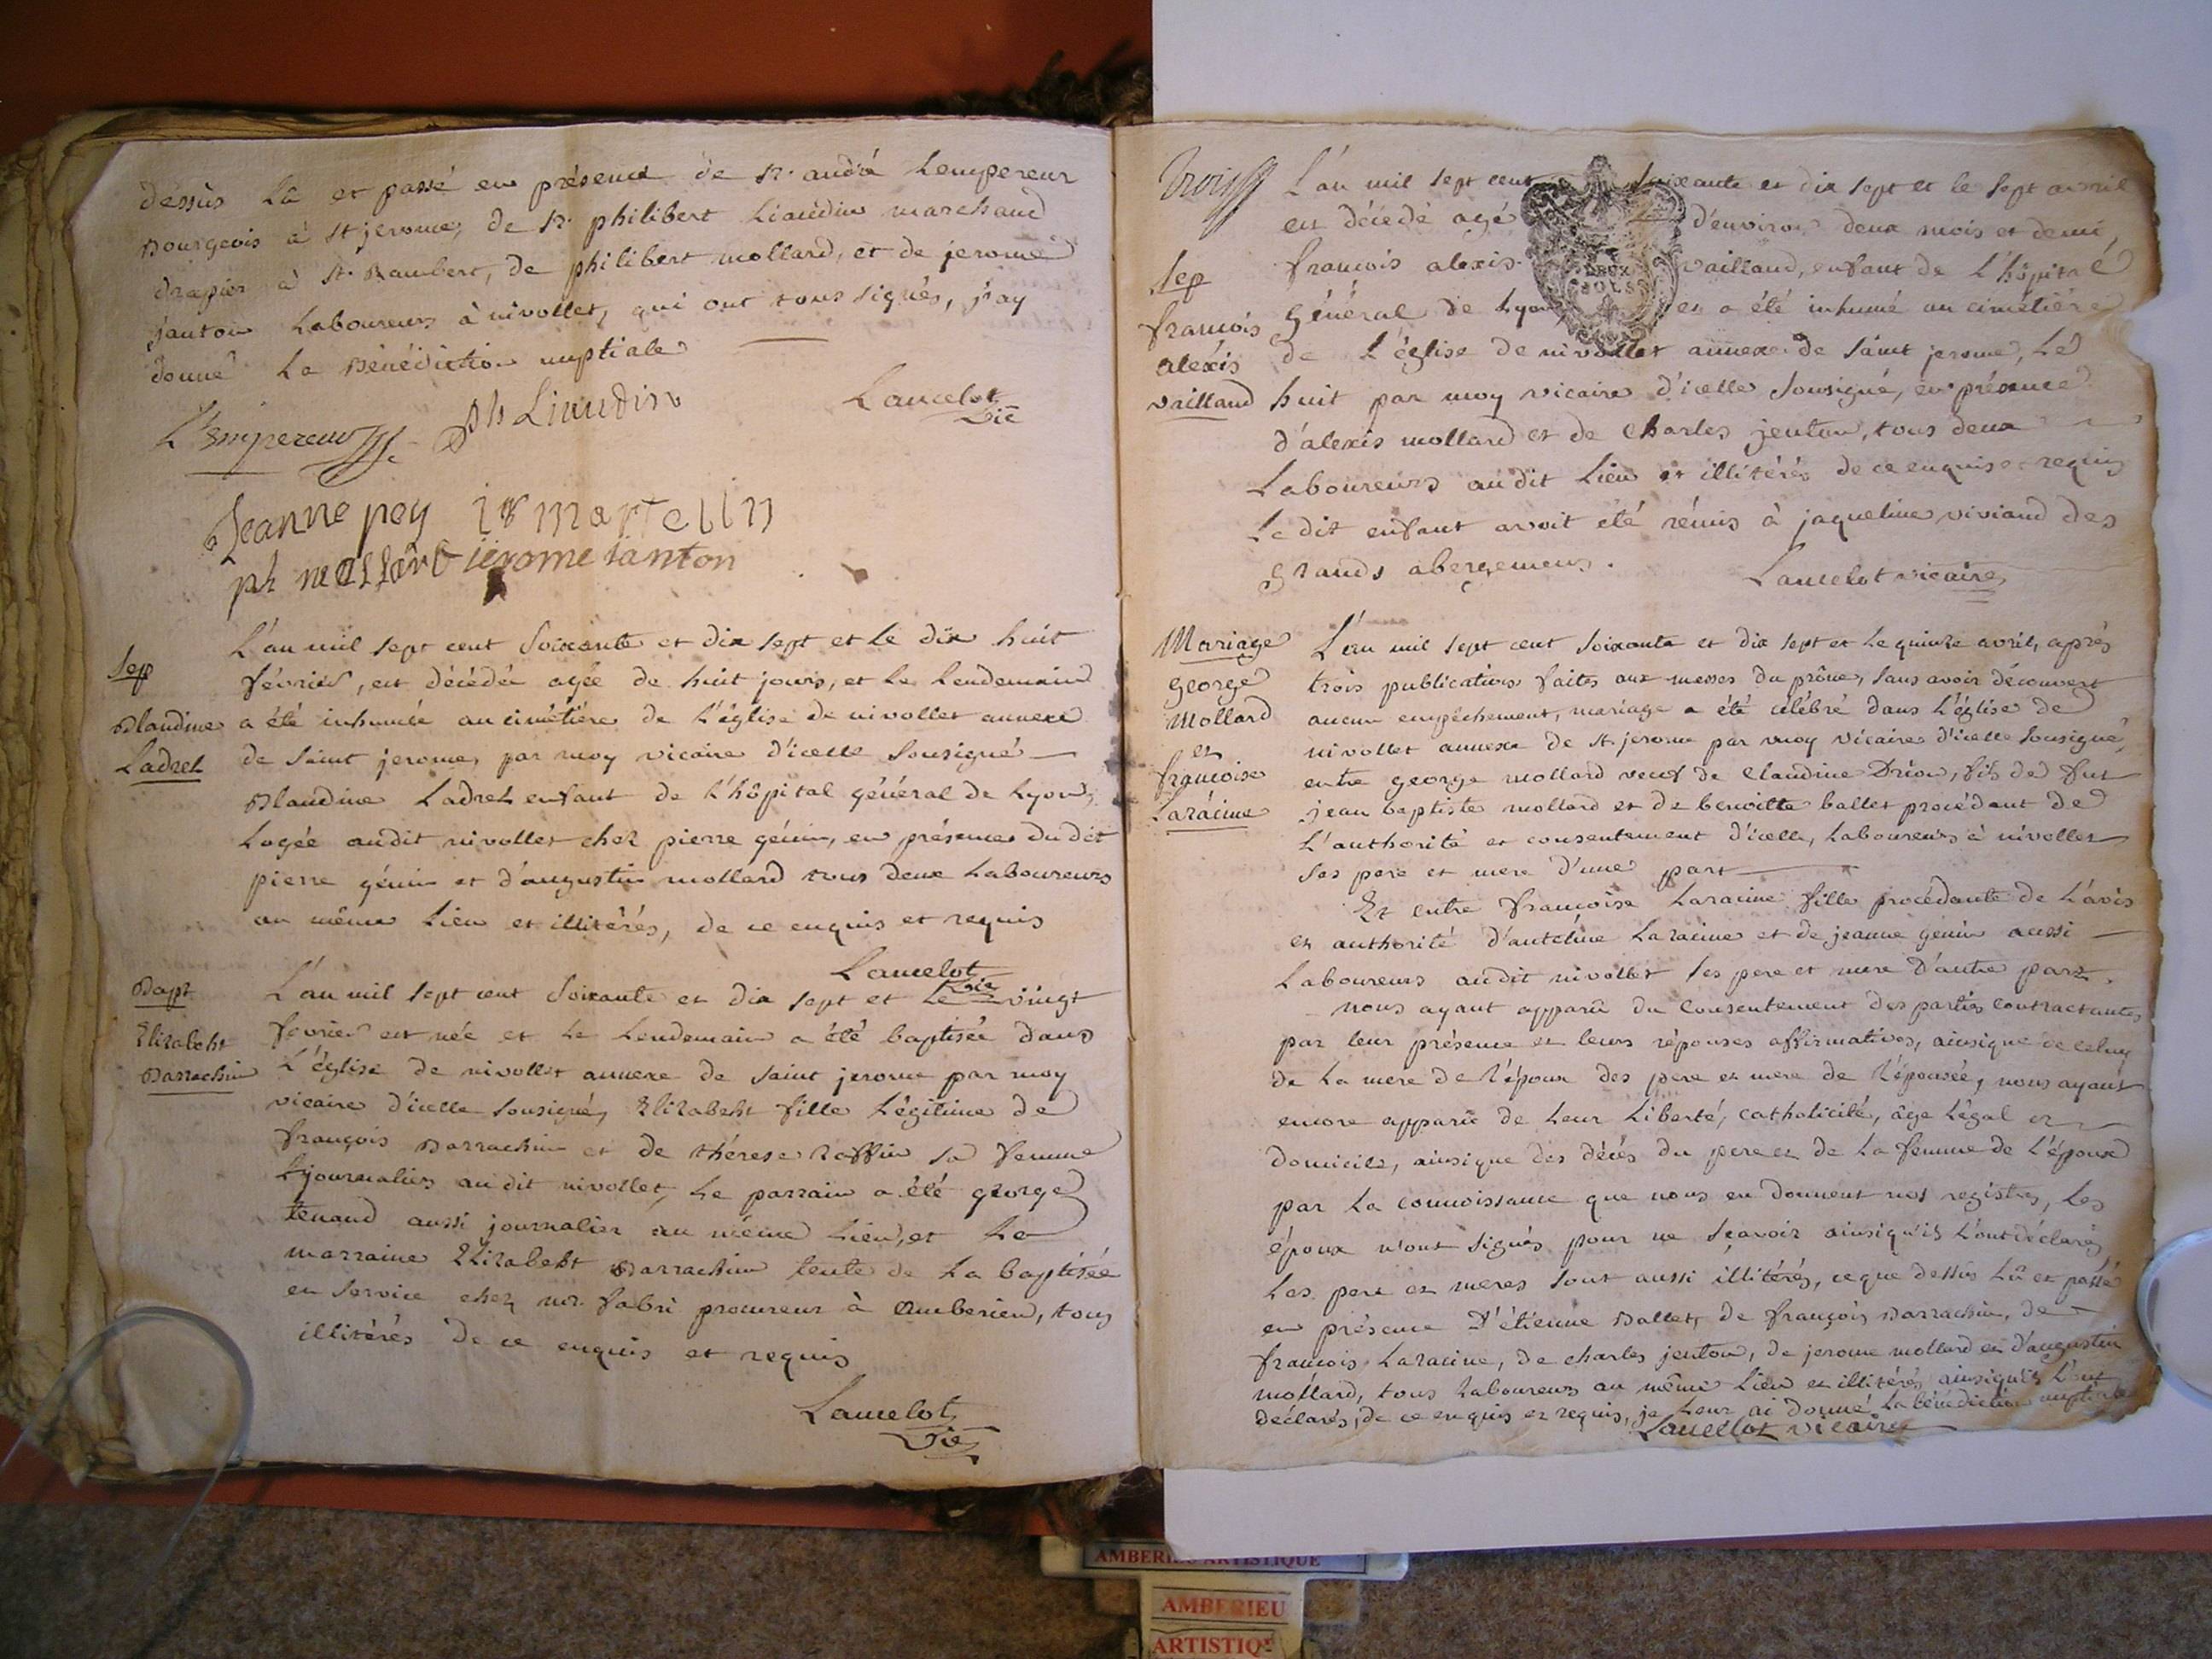 dessus lû et passé en présence de Sr. andré Lempereur
Bourgeois à st jerome, de Sr. philibert Liaudin marchand
drapier à st. Rambert, de philibert mollard, et de jerome
janton Laboureurs à nivollet, qui ont tous signés, j'ay
donné la Bénédiction nuptiale
L'empereur Ph Liaudin Lancelot
vic
Jeanne pey martelin
ph mollard jerome janton
L'an mil sept cent Soixante et dix sept et le dix huit
Sep
février, est décédée agée de huit jours, et le lendemain
Blandine a été inhumée au cimétiére de l'église de nivollet annexe
Ladret de saint jerome, par moy vicaire d'icelle sousigné
Blandine Ladret enfant de l'hôpital général de Lyon,
Logée audit nivollet chez pierre génin, en présence du dit
pierre génin et d'augustin mollard tous deux Laboureurs
au même Lieu et illitérés, de ce enquis et requis
Lancelot
vic
Bapt L'an mil sept cent Soixante et dix sept et le vingt
Elizabeht février est née et le lendemain a été baptisée dans
Barrachin L'église de nivollet annexe de saint jerome par moy
vicaire d'icelle sousigné, Elizabeht fille légitime de
françois Barrachin et de thérese Raffin sa femme
journaliers audit nivollet, le parrain a été george
tenand aussi journalier au même Lieu, et la
marraine Elizabeht Barrachin tente de la baptisée
en service chez mr. fabri procureur à Amberieu, tous
illitérés de ce enquis et requis
Lancelot
vic
Trois L'an mil sept cent Soixante et dix sept et le sept avril
est décédé agé d'environ deux mois et demi,
Sep françois alexis vailland, enfant de l'hôpital
DEUX
SOLS
françois Général de Lyon, et a été inhumé au cimétiére
alexis de l'église de nivollet annexe de saint jerome, le
vailland huit par moy vicaire d'icelle sousigné, en présence
d'alexis mollard et de Charles jenton, tous deux
Laboureurs audit Lieu et illitérés de ce enquis et requis
Le dit enfant avoit été rémis à jaqueline viviand des
grands abergemens.
Lancelot vicaire
Mariage L'an mil sept cent soixante et dix sept et le quinze avril, aprés
george trois publications faites aux messes du prône, sans avoir découvert
mollard aucun empêchement, mariage a été célébré dans l'église de
et nivollet annexe de st jerome par moy vicaire d'icelle sousigné,
françoise entre george mollard veuf de Claudine Drion, fils de fut
Laracine jean baptiste mollard et de benoitte ballet procédant de
L'authorité et consentement d'icelle, Laboureurs à nivollet
ses pere et mere d'une part
Et entre françoise Laracine fille procédante de l'avis
et authorité d'antelme Laracine et de jeanne génin aussi
Laboureurs audit nivollet ses pere et mere d'autre part.
nous ayant apparû du consentement des parties contractantes
par leur présence et leurs réponses affirmatives, ainsique de celuy
de la mere de l'époux des pere et mere de l'épousée, nous ayant
encore apparû de leur liberté, catholicité, âge légal et
domicile, ainsique des décés du pere et de la femme de l'époux
par la connoissance que nous en donnent nos registres, les
époux n'ont signés pour ne sçavoir ainsiqu'ils l'ont déclarés
les pere et meres sont aussi illitérés, ce que dessus lû et passé
en présence d'étienne Ballet, de françois Barrachin, de
françois Laracine, de charles jenton, de jerome mollard et d'augustin
mollard, tous Laboureurs au même Lieu et illitérés ainsiqu'ils l'ont
déclarés, de ce enquis et requis, je leur ai donné la bénédiction nuptiale
Lancelot vicaire
AMBERIEU ARTISTIQUE
AMBERIEU
ARTISTIQ